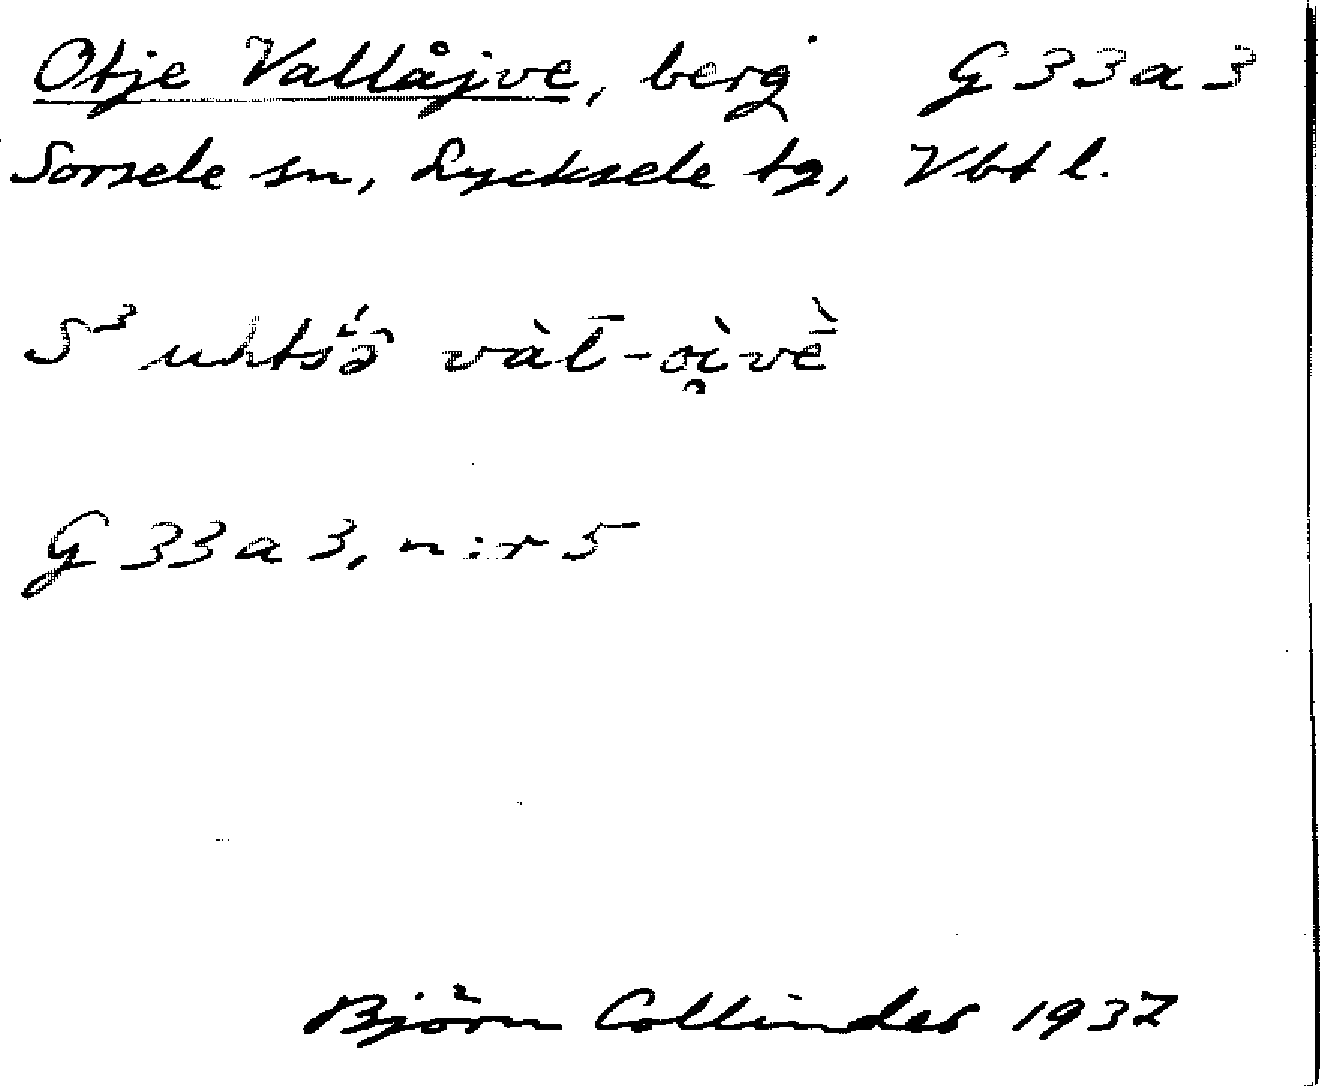 Otje Vallåjve, berg G 33 a 3
Sorsele sn, Lycksele tg, Vbt l.
S³ uhtśə̑ vàl̄-o̯ìvè̄
G 33 a 3, n:r 5
Björn Collinder 1937